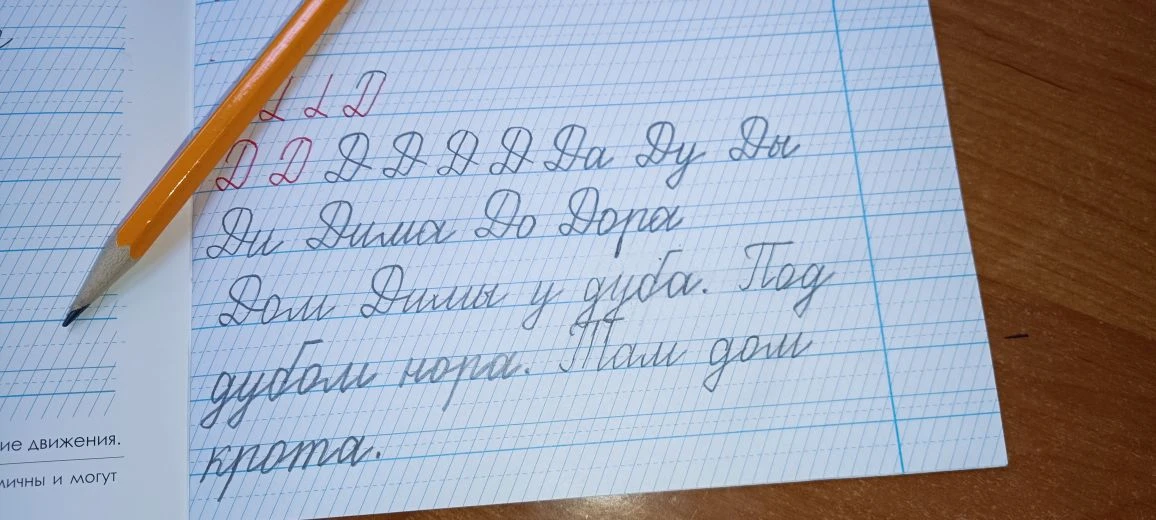 Д
Д Д Д Д Д Д Да Ду Ды
Ди Дима До Дора
Дом Димы у дуба. Под
дубом нора. Там дом
крота.
ие движения.
ичны и могут